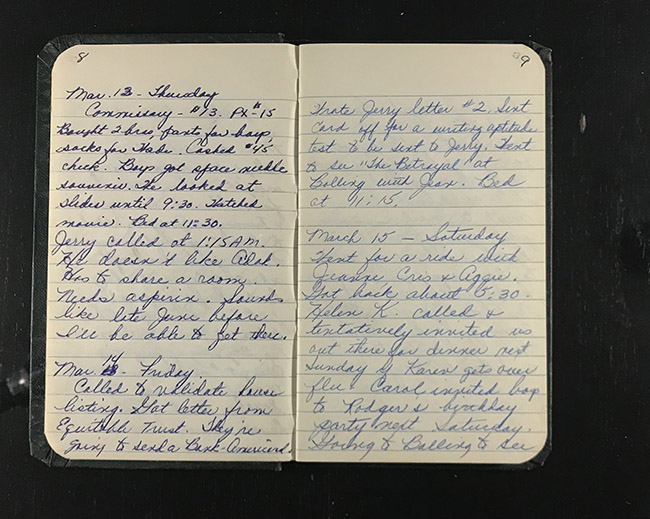 8
Mar. 13 - Thursday
Commissary - $13. PX - $15
Bought 2 bras, pants for boys,
socks for Habs. Cashed $45
check. Boys got space needle
souvenir. We looked at
slides until 9:30. Watched
movie. Bed at 11:30.
Jerry called at 1:15 AM.
He doesn't like Alak.
Has to share a room.
Needs aspirin. Sounds
like late June before
I'll be able to get there.
Mar. 14 - Friday
Called to validate house
listing. Got letter from
Equitable Trust. They're
going to send a Bank-Americard.
9
Wrote Jerry letter #2. Sent
card off for a writing aptitude
test to be sent to Jerry. Went
to see "The Betrayal" at
Bolling with Jean. Bed
at 11:15.
March 15 - Saturday
Went for a ride with
Jeanne Cris & Aggie.
Got back about 5:30.
Helen K. called &
tentatively invited us
out there for dinner next
Sunday if Karen gets over
flu. Carol invited boys
to Rodger's birthday
party next Saturday.
Going to Bolling to see